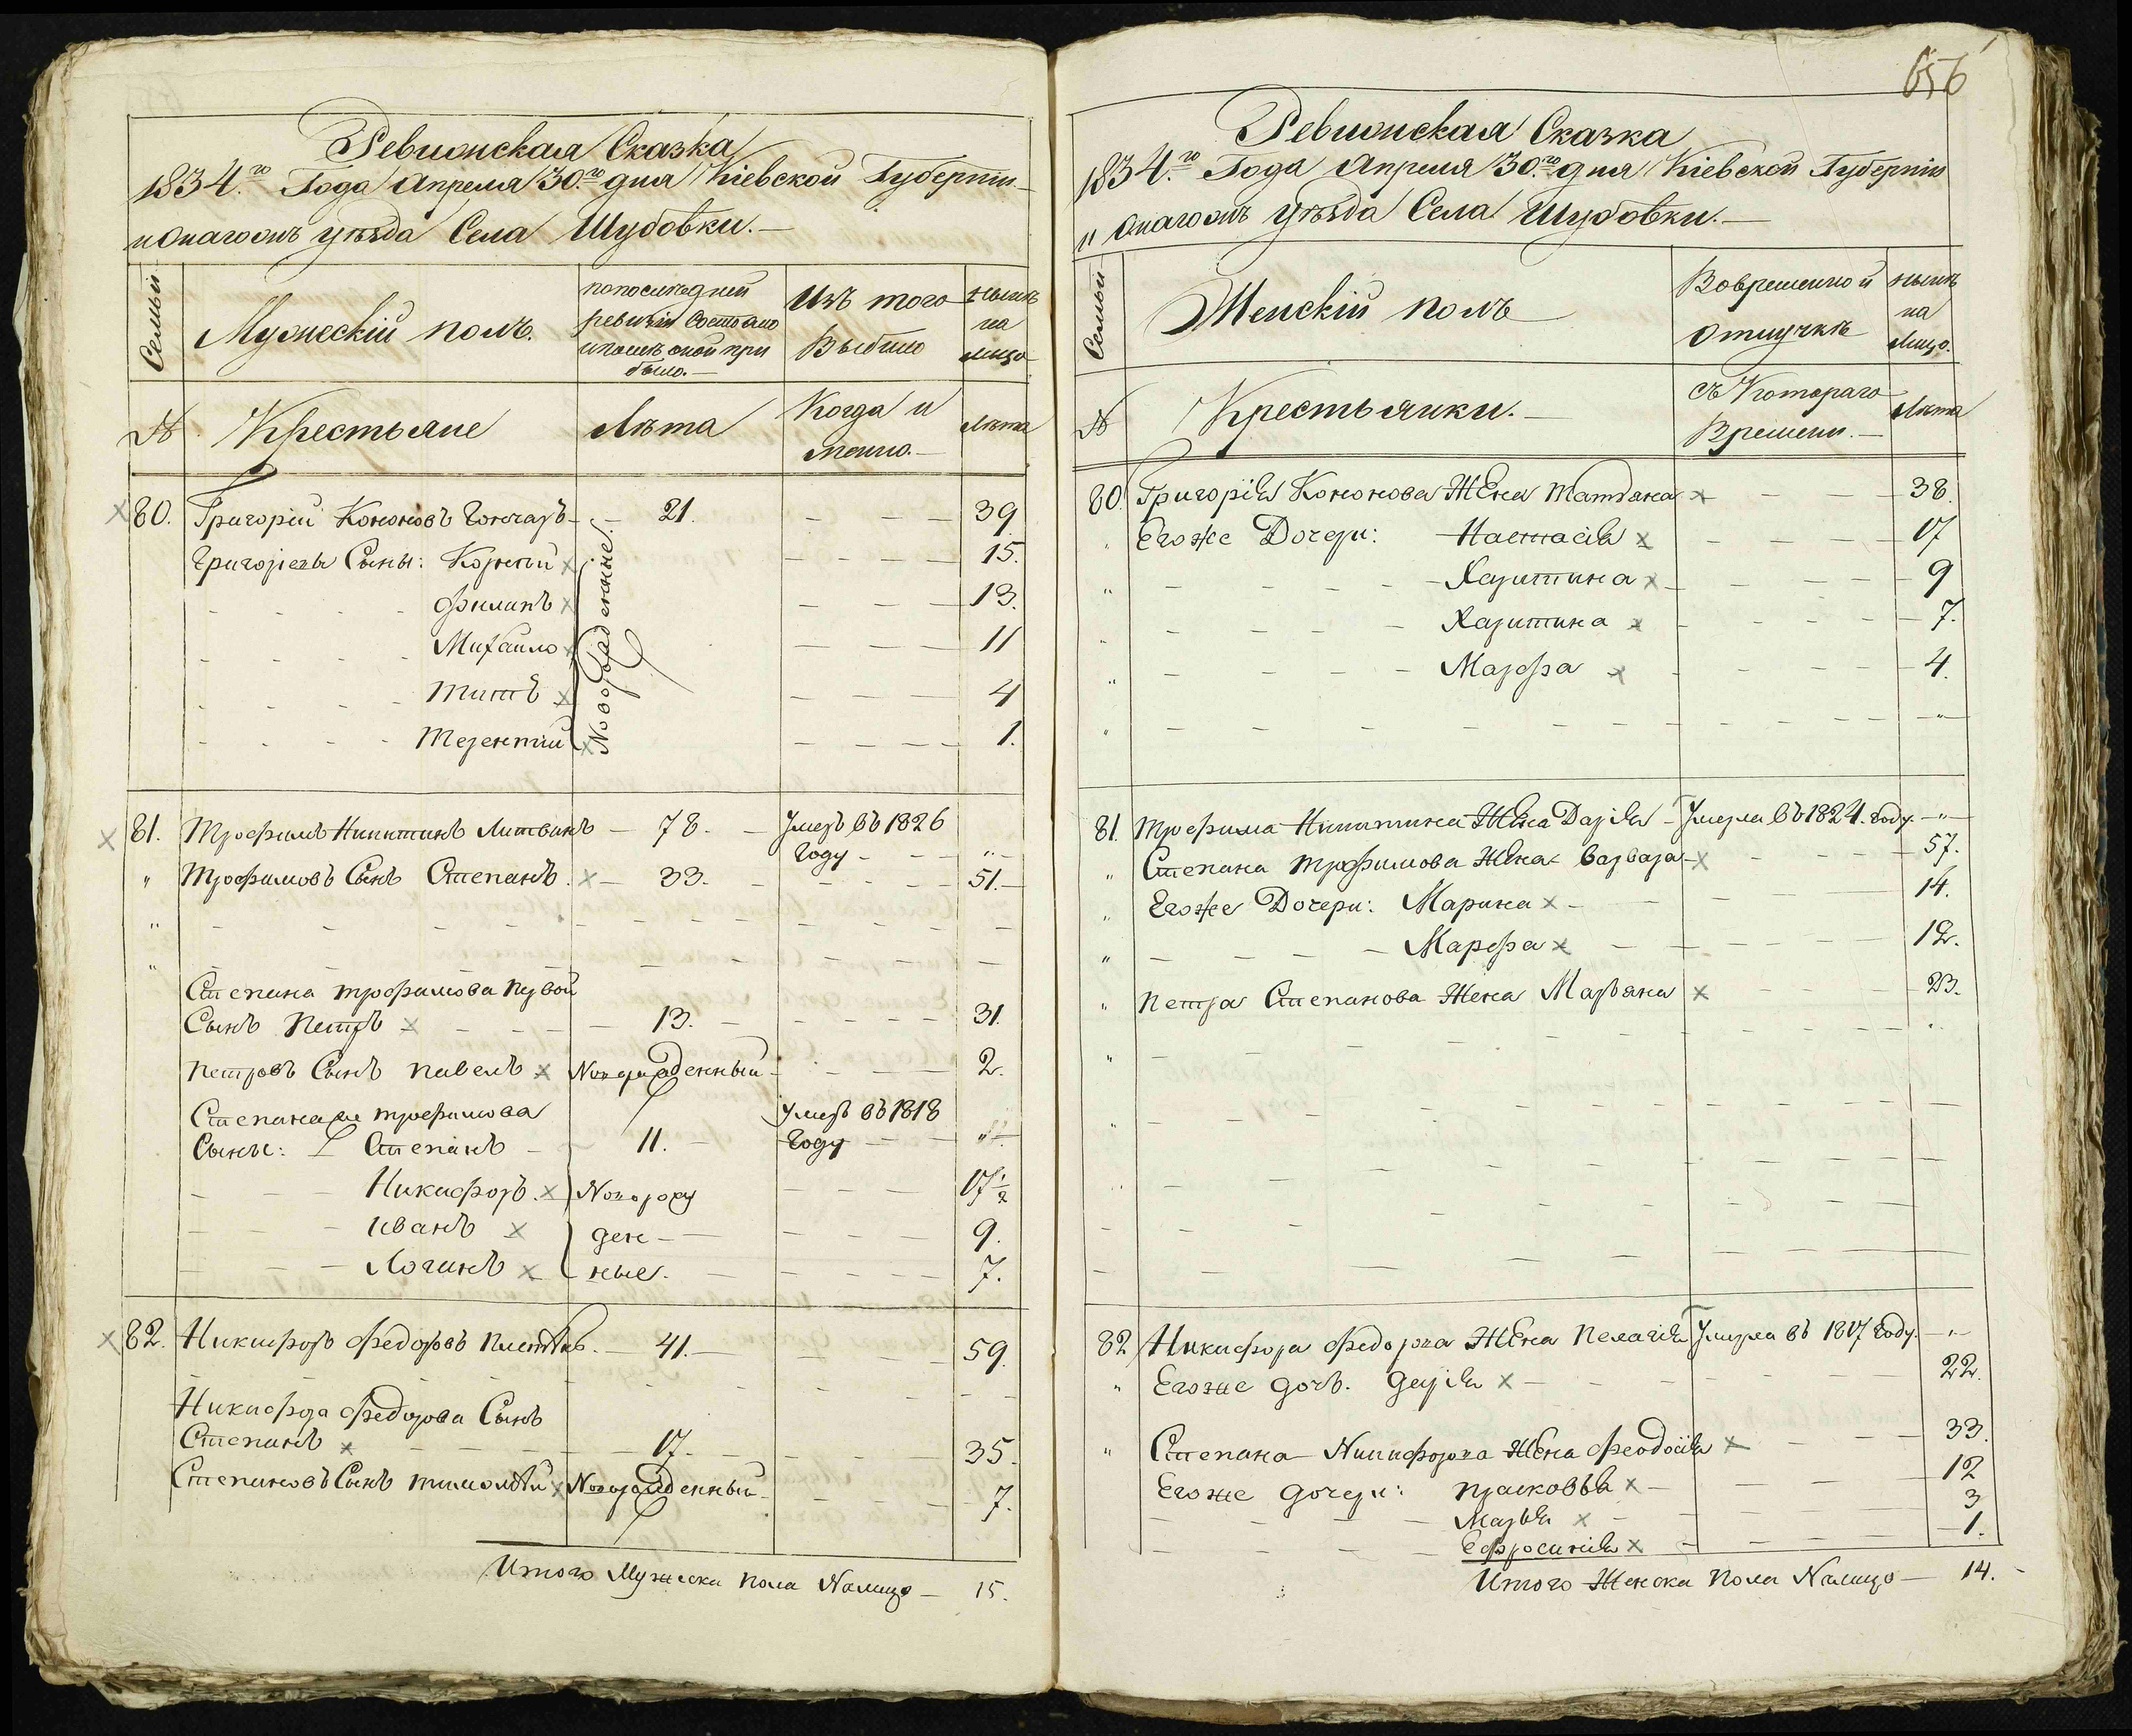 Ревизская Сказка
1834.го Года Апреля 30.го дня Кіевской Губерніи
уѣзда Села Шубовки.
Семьи
Мужескій полъ.
по последней
ревизіи состояло
и после оной при
было.
Изъ того
Выбыло
Нынѣ
на
лицо
№
Крестьяне
Лѣта
Когда и
имянно.
Лѣта
80. Григорій Кононовъ Гончаръ 21. 39
Григорьевы Сыны: Корнѣй 15.
Филипъ 13.
Михайло 11
Титъ 4
Терентій 1.
Новорожденные
81. Трофимъ Никитинъ Литвинъ 78. Умеръ въ 1826
Году
Трофимовъ Сынъ Степанъ. 33. 51.
Степана Трофимова первой
Сынъ Петръ 13. 31.
Петровъ Сынъ Павелъ Новорожденный 2.
Степана же Трофимова Умеръ въ 1818
Сыны: 1 Степанъ 11. Году
Никифоръ. Новорож 17 1/2
Иванъ ден 9.
Логинъ ные. 7.
82. Никифоръ Федоровъ 41. 59.
Никифора Федорова Сынъ
Степанъ 17. 35.
Степановъ Сынъ Тимофѣй Новорожденный 7.
Итого Мужеска пола Налицо — 15.
656
Ревизская Сказка
1834.го Года Апреля 30.го дня Кіевской Губерніи
уѣзда Села Шубовки.
Семьи
Женскій полъ
Во временной
отлучкѣ
нынѣ
на
лицо.
№
Крестьянки.
съ Котораго
Времени.
Лѣта
80. Григорія Кононова Жена Татьяна 38.
Егоже Дочери: Настасія 17
Харитина 9
Харитина 7.
Марфа 4.
81. Трофима Никитина Жена Дарія Умерла въ 1824. Году.
Степана Трофимова Жена Варвара 57.
Егоже Дочери: Марина 14.
Марфа 12.
Петра Степанова Жена Марьяна 23.
82 Никифора Федорова Жена Пелагія Умерла въ 1817 Году.
Егоже дочь. Дарія 22.
Степана Никифорова Жена Феодосія 33.
Егоже дочери: Прасковья 12
Марья 3
Ефросинія 1.
Итого Женска пола Налицо — 14.